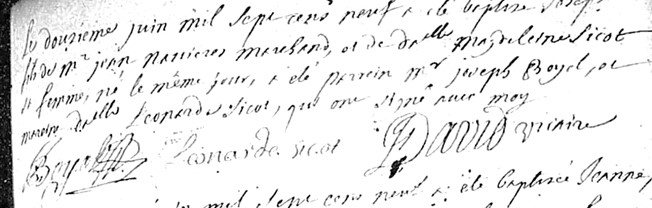 Le douzieme juin mil sept cens neuf a eté baptisé Joseph
fils de mr jean nanieres marchand, et de dalle magdeleine Sicot
sa femme, né le même jour, a été parrein mr joseph Boyel, et
mareine dalle Leonarde Sicot, qui ont signé avec moy
Boyel Leonarde sicot David vicaire
mil sept cens neuf a été baptisée Jeanne,